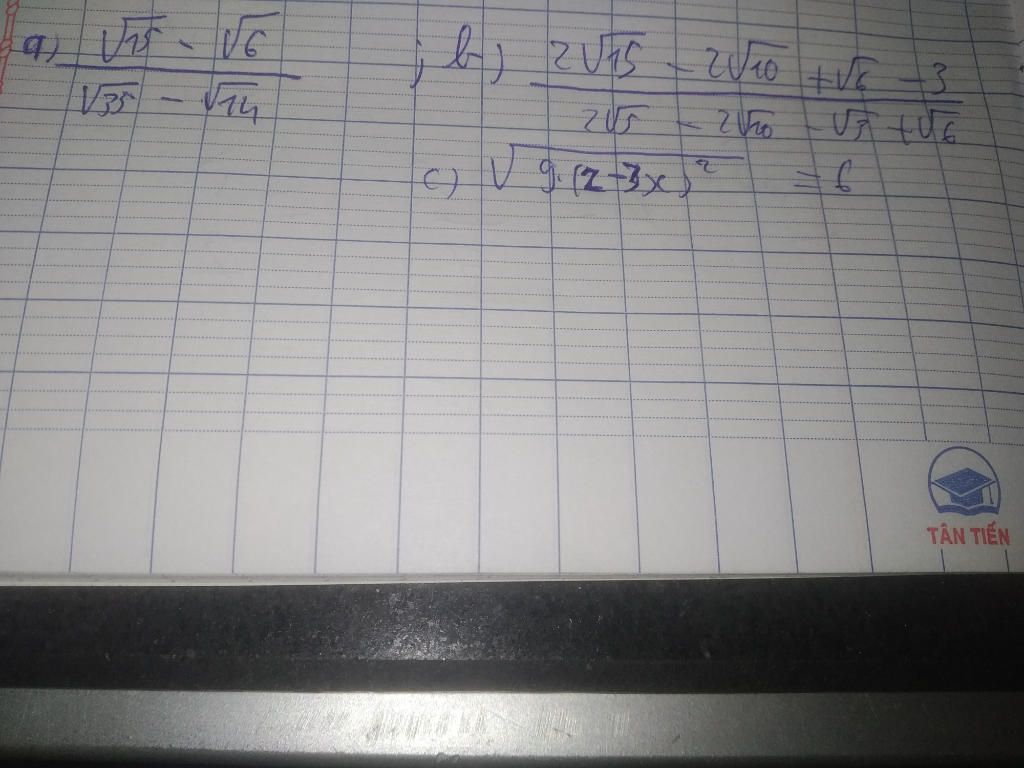 a) (√15 - √6) / (√35 - √14) ; b) (2√15 - 2√10 + √6 - 3) / (2√5 - 2√10 - √3 + √6)
c) √(9.(2-3x)²) = 6
TÂN TIẾN